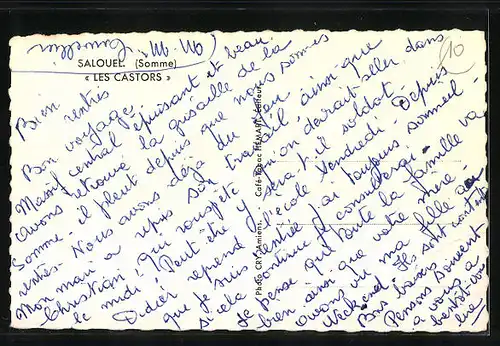 SALOUEL (Somme)
« LES CASTORS »
Café-Tabac HEMART, éditeur
Photo CRY Amiens
10
Bien rentrés
Bon voyage
Massif central épuisant et beau
avons retrouvé la grisaille de la
Somme - il pleut depuis que nous sommes
rentrés - Nous avons déjà du
Mon mari a repris son travail, ainsi que
Christian qui rouspète qu'on devrait aller dans
le midi ! Peut-être y sera t'il soldat.
Didier reprend l'école Vendredi - Depuis
que je suis rentrée j'ai toujours sommeil -
si cela continue je
Je pense que toute la famille va
bien ainsi que votre mère -
avons vu ma fille au
Week-end Ils sont contents
Bons baisers
Pensons souvent
à vous à